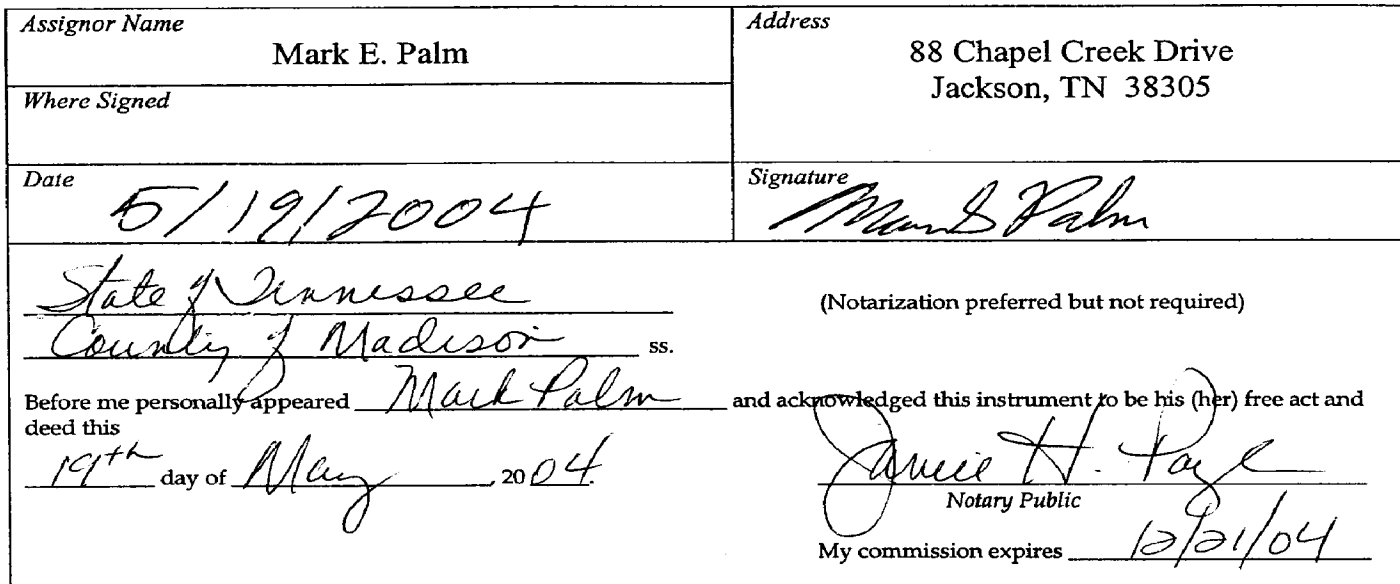 Assignor Name
Mark E. Palm
Address
88 Chapel Creek Drive
Jackson, TN 38305
Where Signed
Date
5/19/2004
Signature
Mark E Palm
State of Tennessee
(Notarization preferred but not required)
County of Madison ss.
Before me personally appeared Mark Palm and acknowledged this instrument to be his (her) free act and
deed this
19th day of May, 2004.
Janice H.
Notary Public
My commission expires 12/21/04